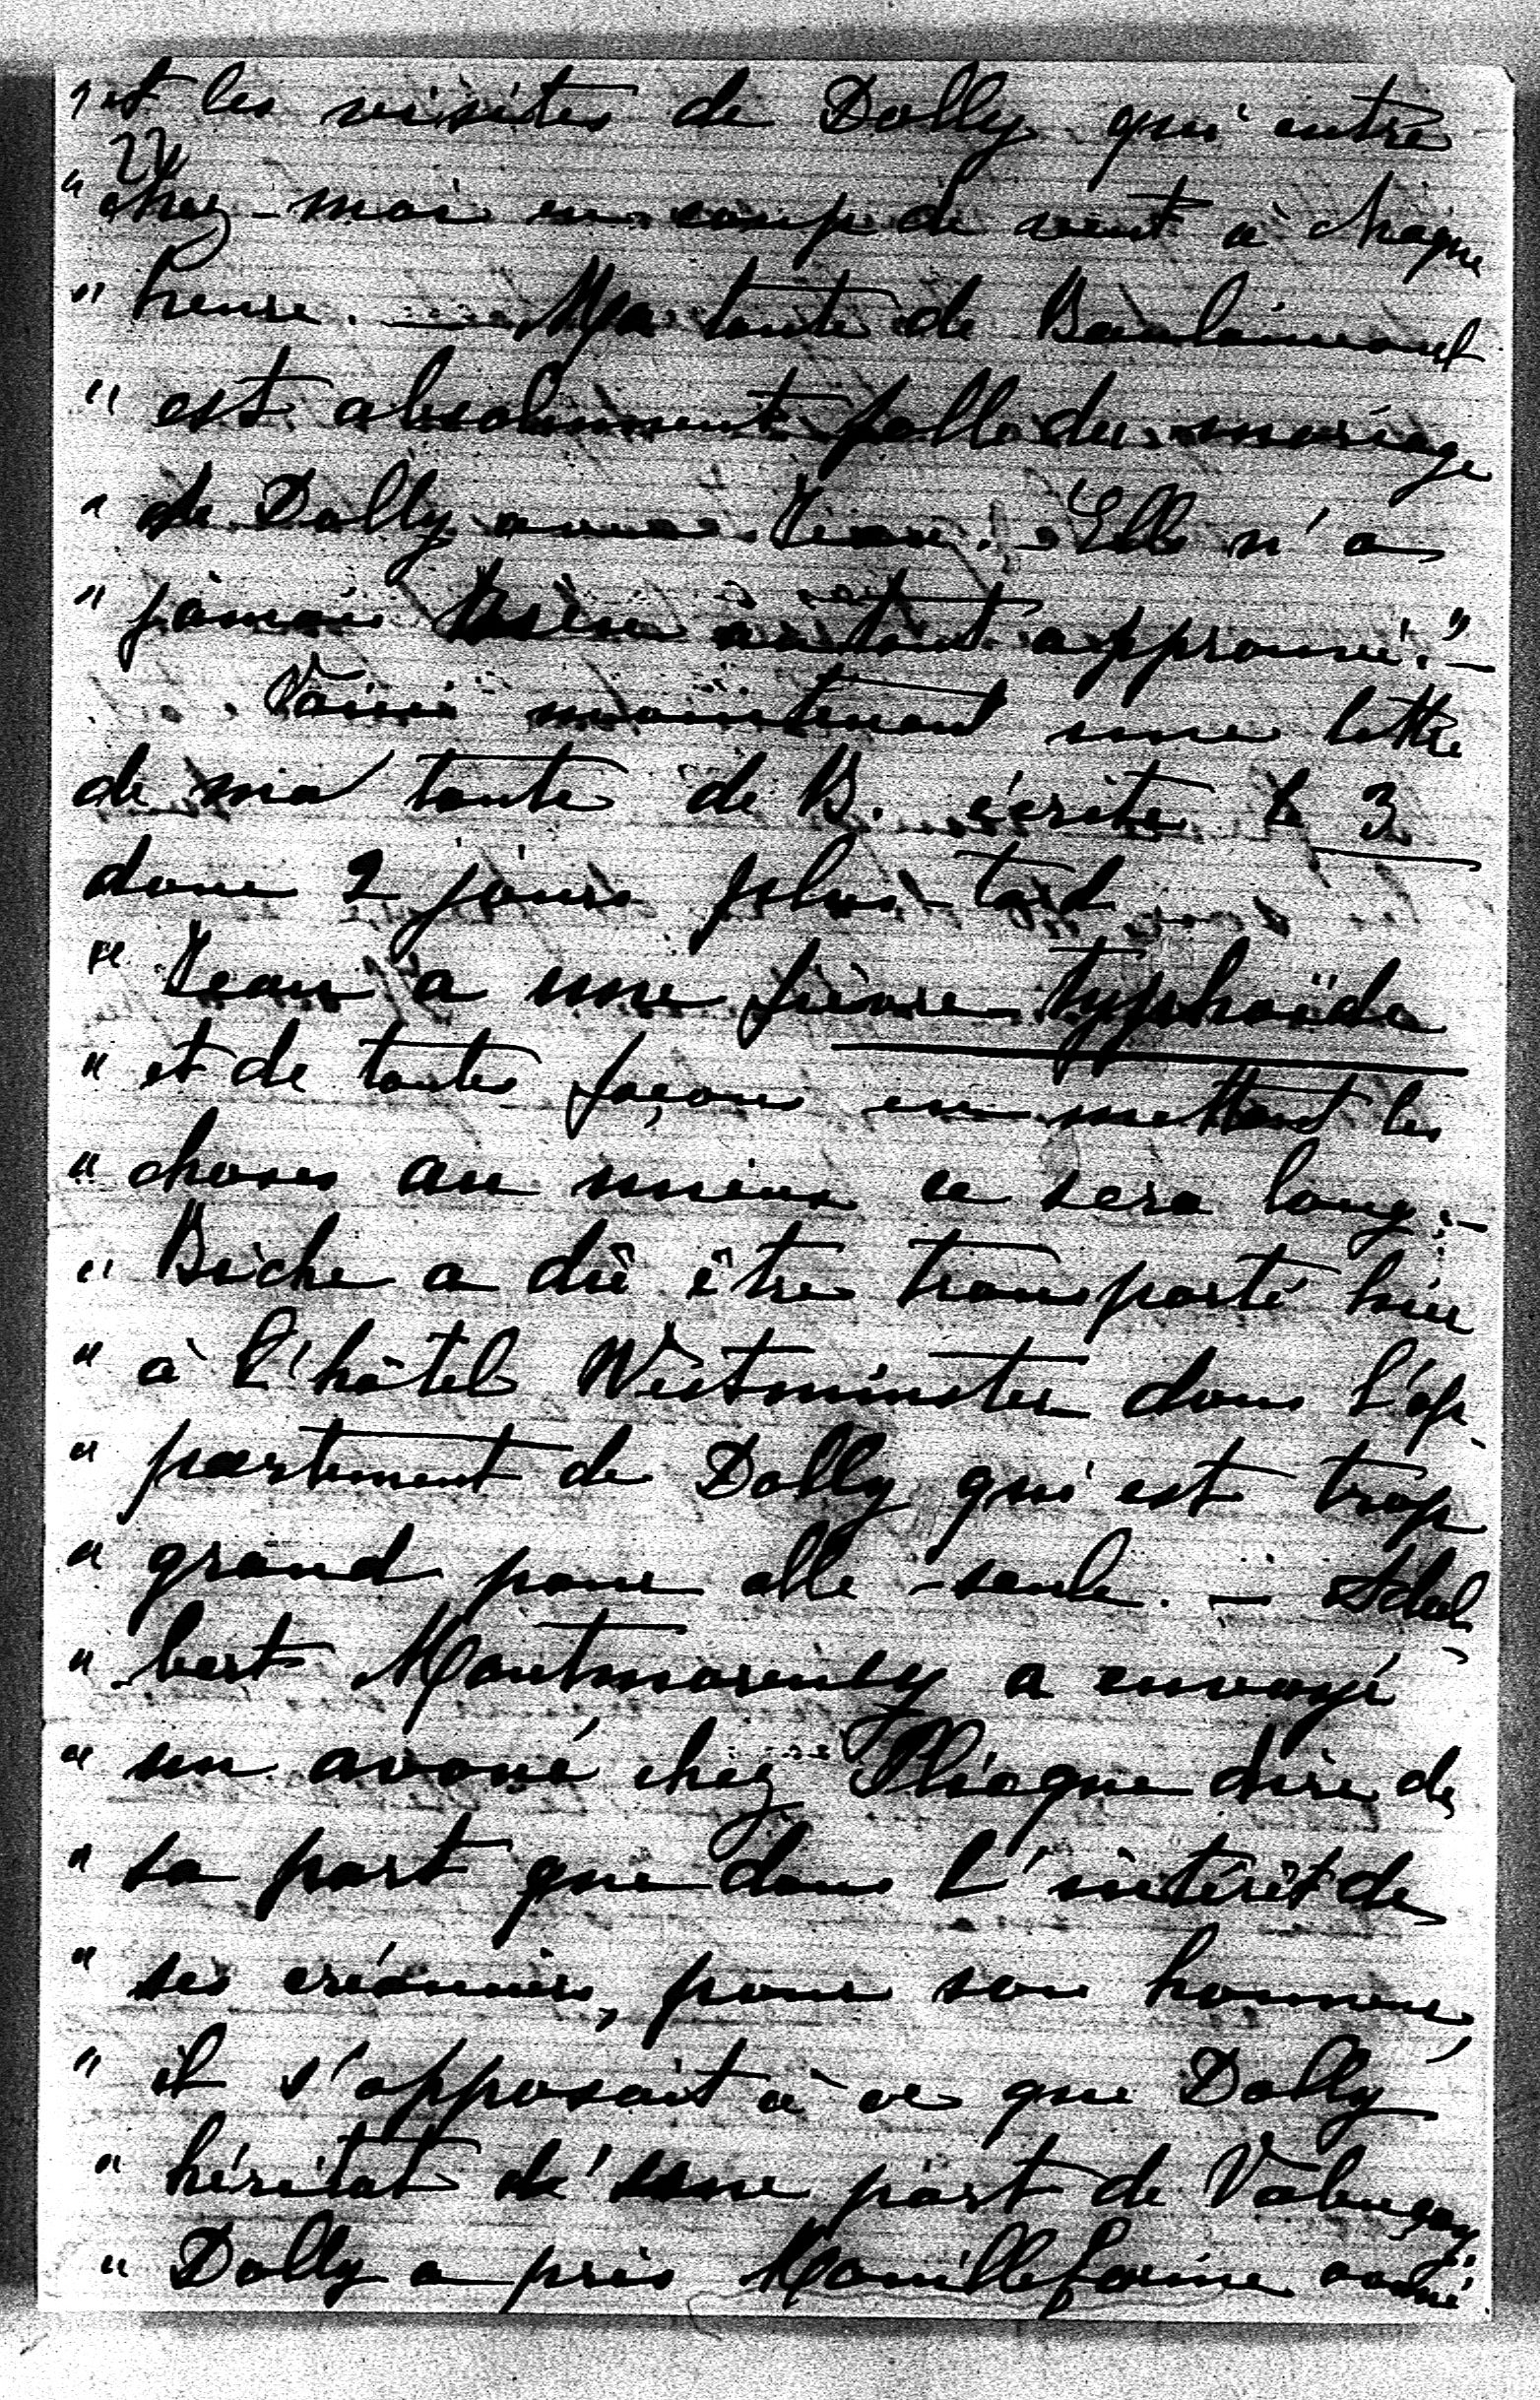 " et les visites de Dolly qui entre
22
" chez-moi en coup de vent à chaque
" heure. — Ma tante de Beaulaincourt
" est absolument folle du mariage
" de Dolly avec Jean. — Elle n'a
" jamais rien autant approuvé." —
Voici maintenant une lettre
de ma tante de B. écrite le 3
donc 2 jours plus-tard
" Jean a une fièvre typhoïde
" et de toutes façons en mettant les
" choses au mieux ce sera long. —
" Biche a dû être transporté hier
" à l'hôtel Westminster dans l'ap
" partement de Dolly qui est trop
" grand pour elle-seule. — Adal
" bert Montmorency a envoyé
" un avoué chez Pliogue dire de
" sa part que dans l'intérêt de
" ses créanciers, pour son honneur,
" il s'opposait à ce que Dolly
" héritat d'une part de Valençay
" Dolly a pris Mouillefarine avoué